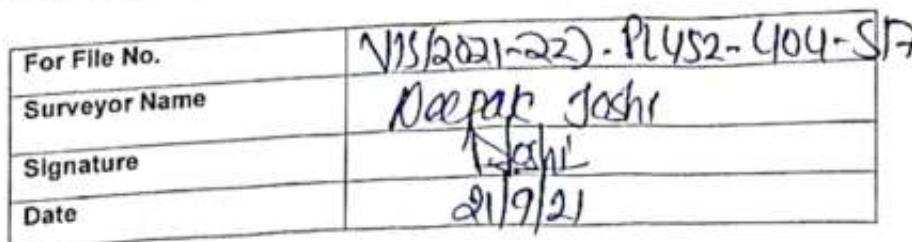 For File No. VIS(2021-22)-PL452-404-517
Surveyor Name Deepak Joshi
Signature Joshi
Date 21/9/21